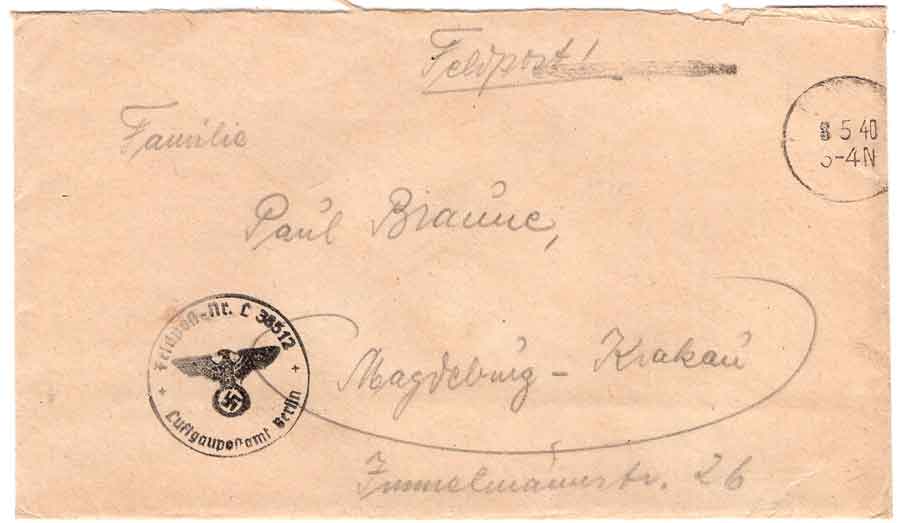 Feldpost!
8 5 40
3-4N
Familie
Paul Braune,
Feldpost-Nr. L 38512
Luftgaupostamt Berlin
Magdeburg - Krakau
Immelmannstr. 26